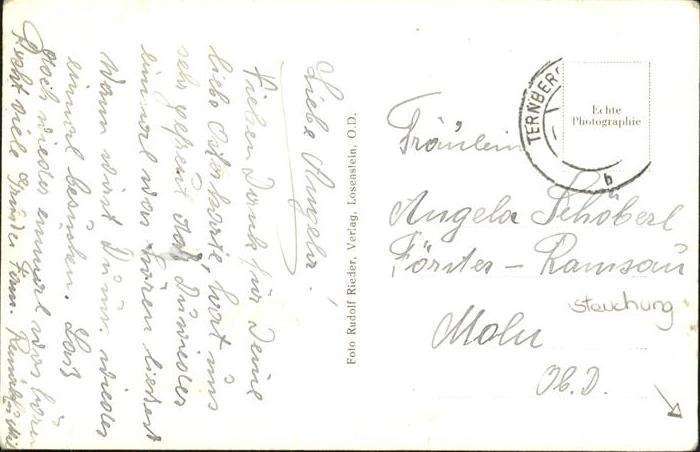 Liebe Angela!
Vielen Dank für Deine
liebe Osterkarte, hat uns
sehr gefreut daß Du wieder
einmal was hören liesest
Wann wirst Du uns wieder
einmal besuchen. Laß
doch wieder einmal was hören
Recht viele Grüße Fam.
Foto Rudolf Rieder, Verlag, Losenstein, O.D.
TERNBER
b
Echte
Photographie
Fräulein
Angela Schöberl
Förster - Ramsau
Molln
Ob. D.
stauchung